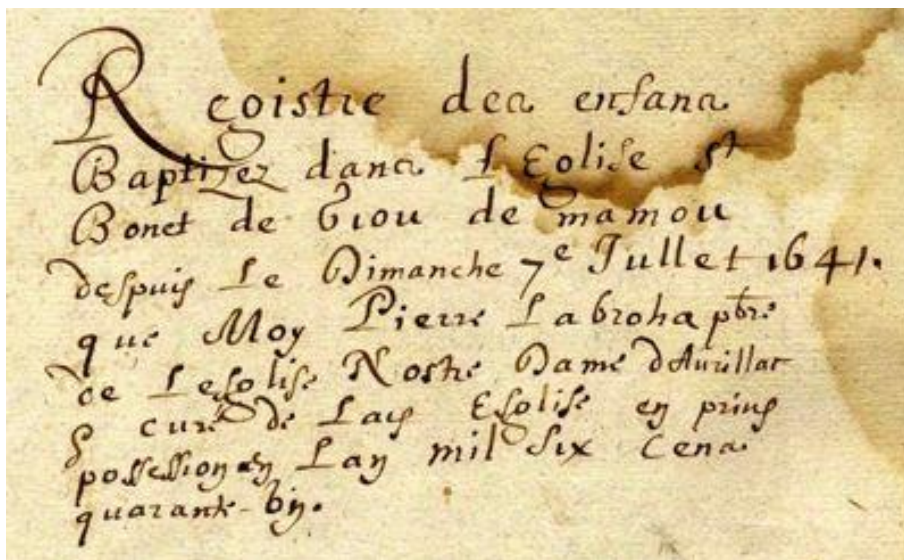 Registre des enfans
Baptizez dans L Eglise st
Bonet de Giou de mamou
despuis Le Dimanche 7e Jullet 1641.
que Moy Pierre Labroha pbre
de L esglise Nostre Dame d'Aurillac
& curé de Lad Esglise en prins
possession en Lan mil six cens
quarante-un.